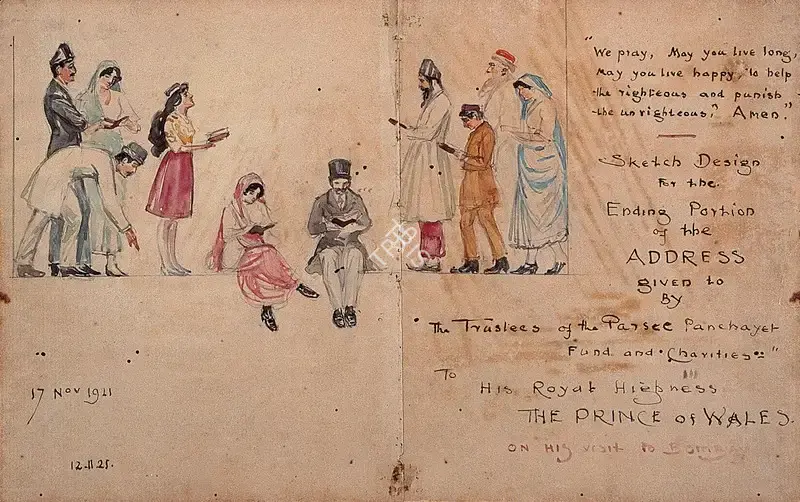 "We pray, May you live long,
may you live happy, to help
the righteous and punish
the unrighteous! Amen."
Sketch Design
For the
Ending Portion
of the
ADDRESS
given to
By
"The Trustees of the Parsee Panchayet
Fund and Charities"
To
His Royal Highness
THE PRINCE of WALES.
ON HIS VISIT to BOMBAY
17 Nov 1921
12.11.25.